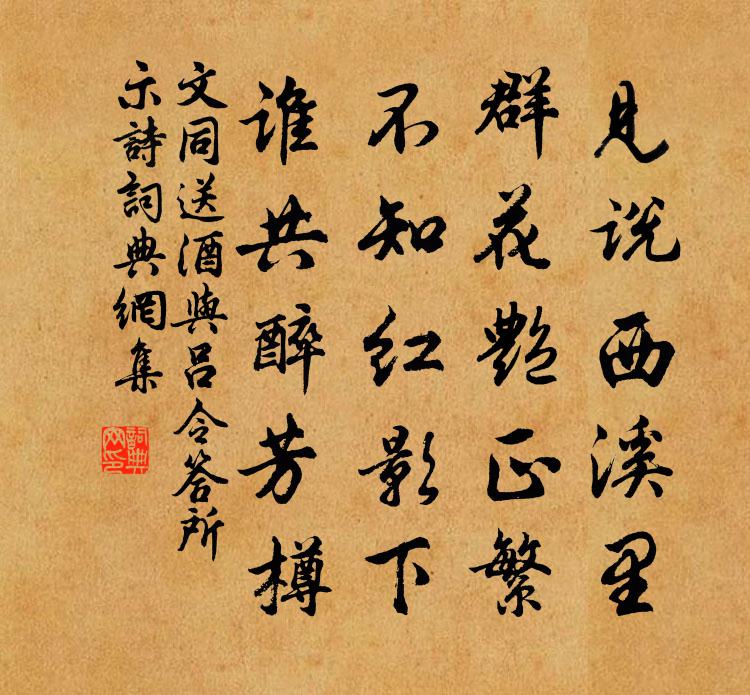 見説西溪里
群花艷正繁
不知紅影下
誰共醉芳樽
文同送酒與呂令答所
示詩詞典網集
詞典
网印